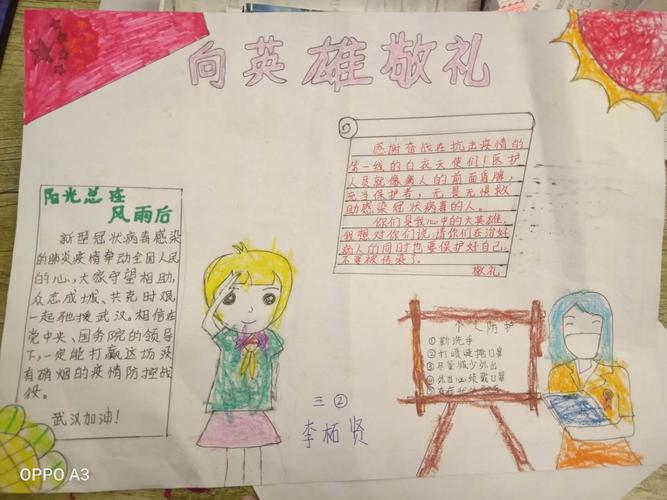 向英雄敬礼
感谢奋战在抗击疫情的
第一线的白衣天使们！医护
人员就像病人的前面盾牌，
充当保护者，无畏无惧救
助感染冠状病毒的人。
你们是我心中的大英雄，
我想对你们说：请你们在治好
病人的同时也要保护好自己，
不要被传染了。
敬礼
阳光总在
风雨后
新型冠状病毒感染
的肺炎疫情牵动全国人民
的心，大家守望相助，
众志成城、共克时艰，
一起驰援武汉。相信在
党中央、国务院的领导
下，一定能打赢这场没
有硝烟的疫情防控战
役。
武汉加油！
个人防护
①勤洗手
②打喷嚏掩口鼻
③尽量减少外出
④外出必须戴口罩
三②
李栢贤
OPPO A3